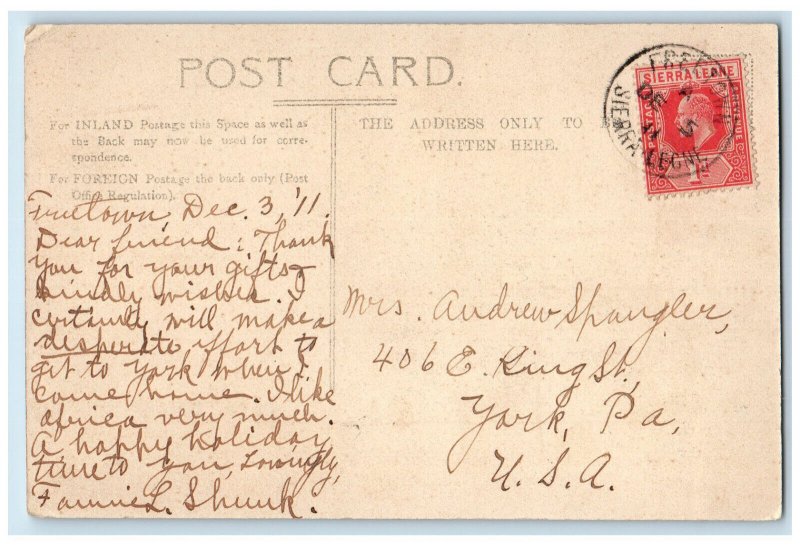 POST CARD.
For INLAND Postage this Space as well as
the Back may now be used for corre-
spondence.
For FOREIGN Postage the back only (Post
Office Regulation).
THE ADDRESS ONLY TO BE
WRITTEN HERE.
FREETOWN
SIERRA LEONE
DE 4
11
SIERRA LEONE
POSTAGE
&REVENUE
1D
Freetown Dec. 3, '11.
Dear friend: Thank
you for your gifts &
kindly wishes. I
certainly will make a
desperate effort to
get to York when I
come home. I like
Africa very much.
A happy holiday
time to you, Lovingly,
Fannie L. Shunk.
Mrs. Andrew Spangler,
406 E. King St.,
York, Pa,
U.S.A.